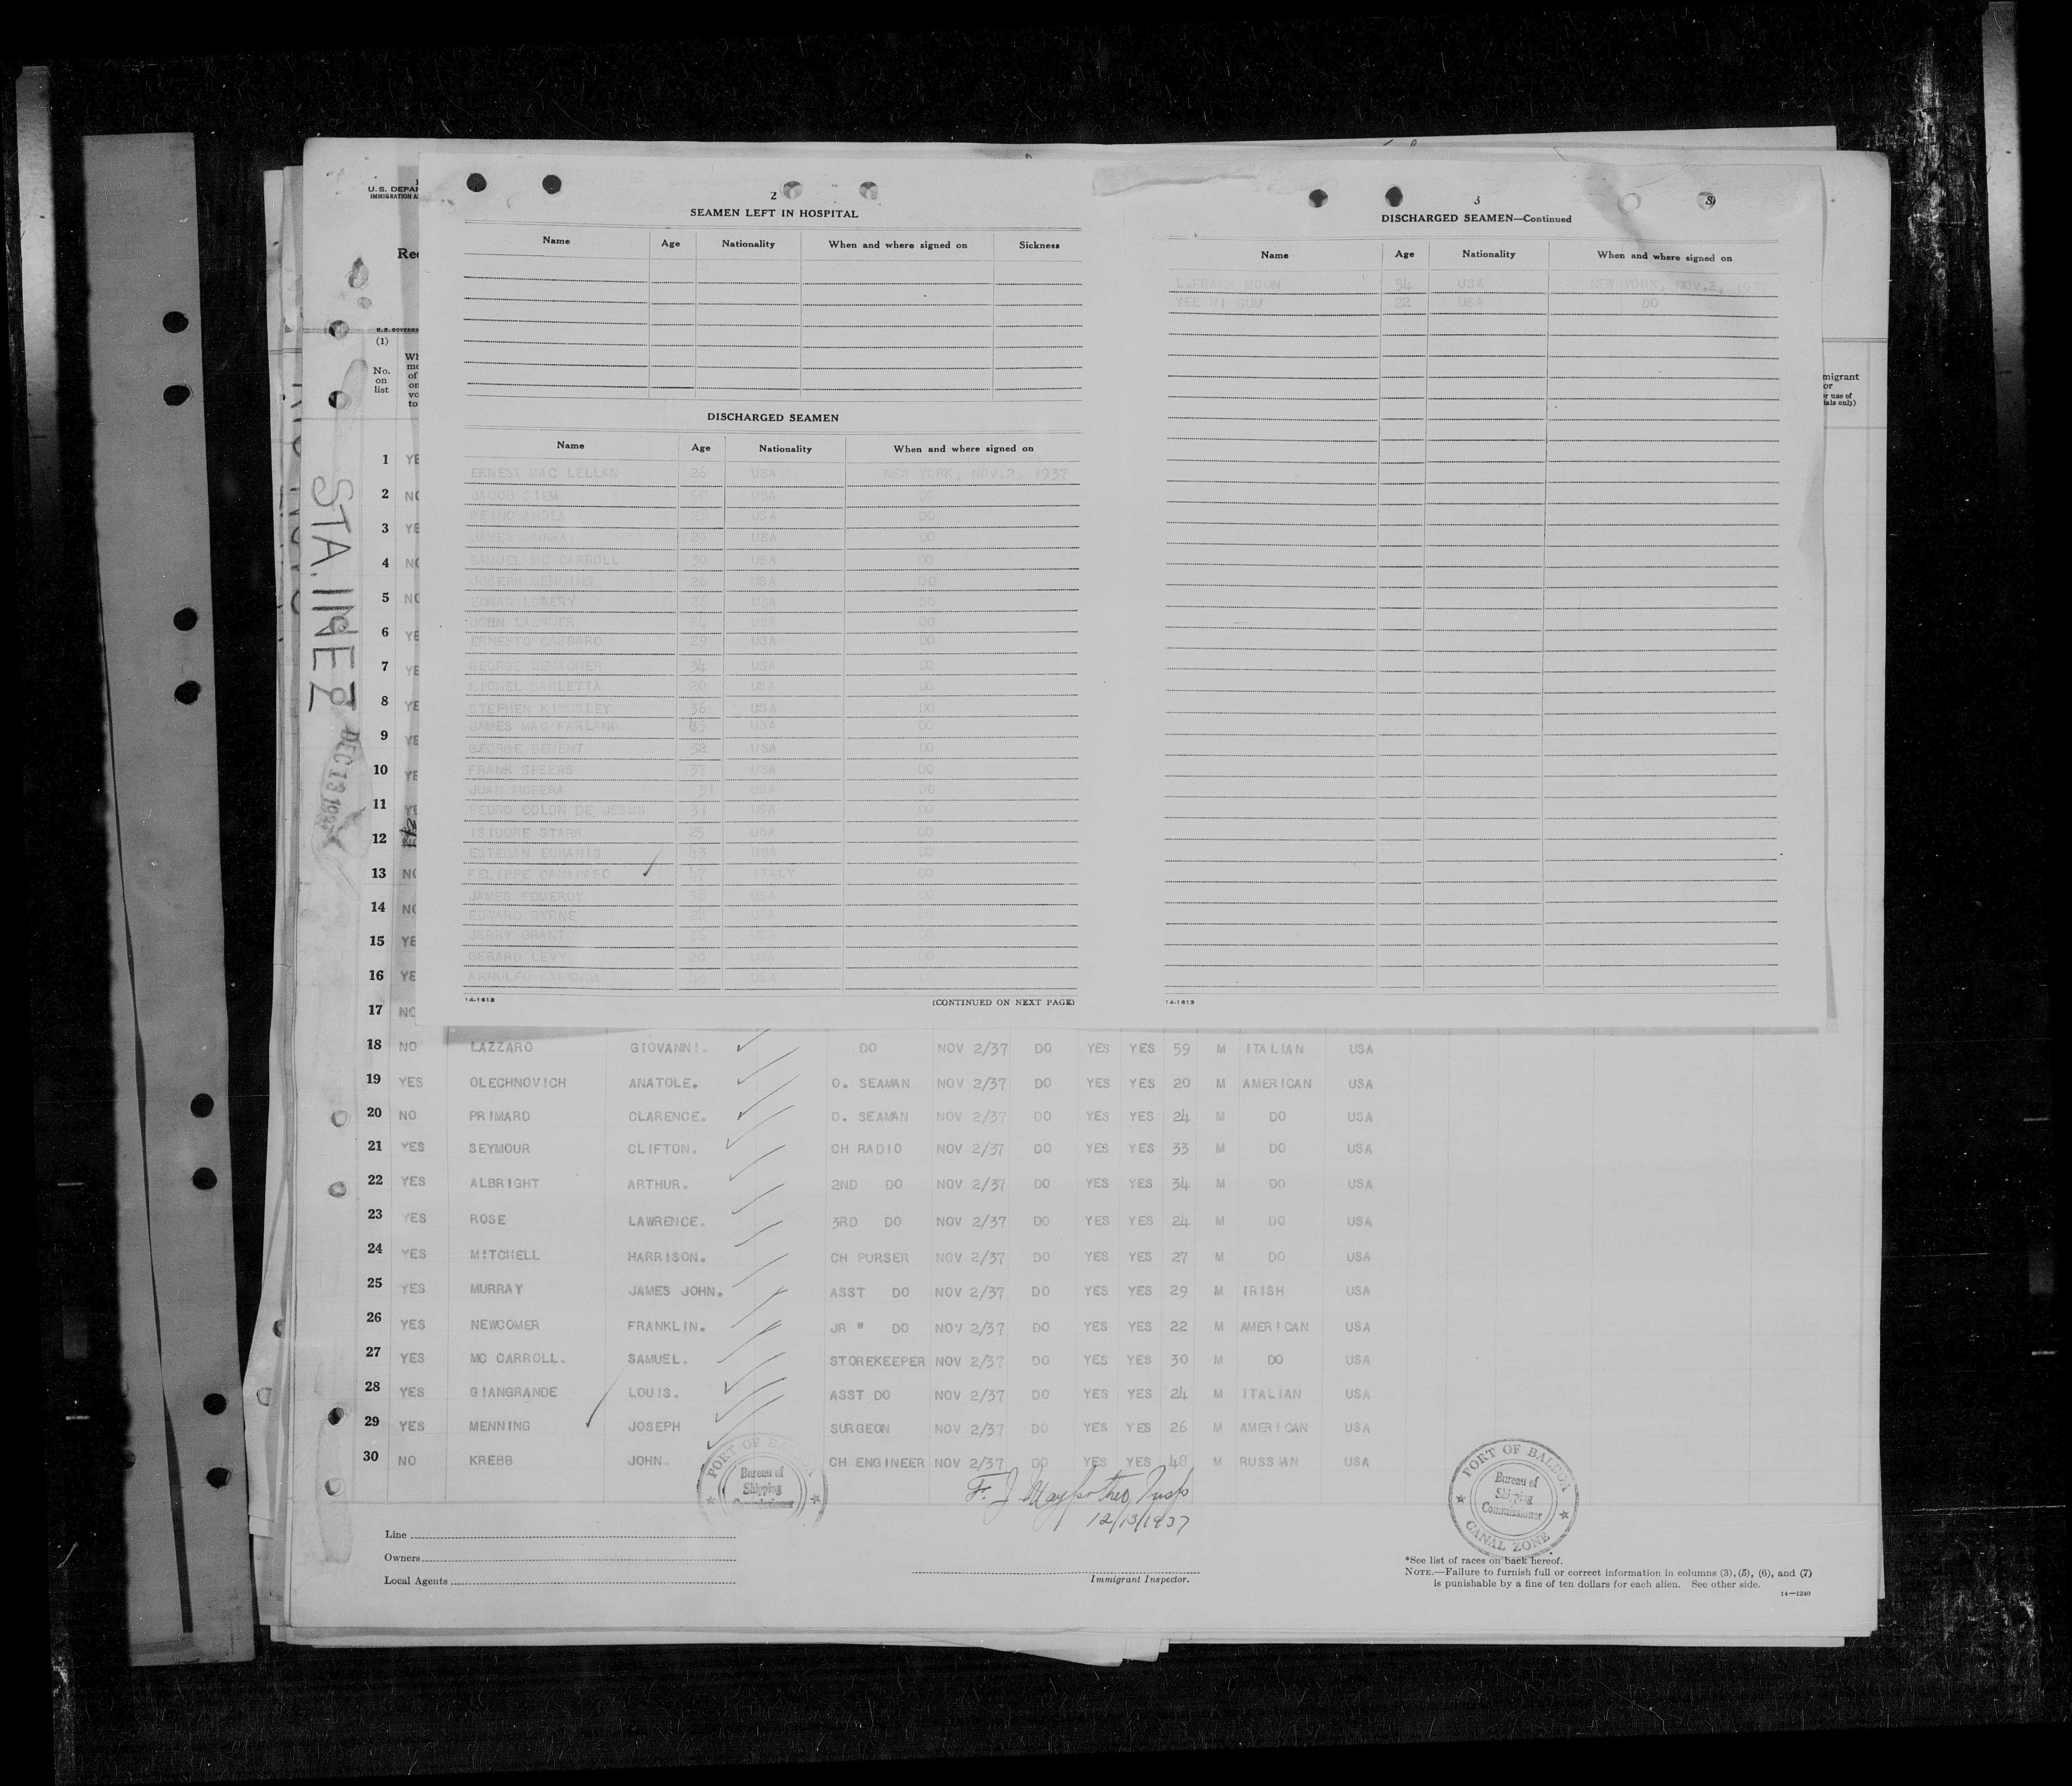 U.S. DEPAR
IMMIGRATION A
Rec
U.S. GOVERN
(1)
No. on list
STA. INEZ
DEC 13 1937
2
SEAMEN LEFT IN HOSPITAL
Name Age Nationality When and where signed on Sickness
DISCHARGED SEAMEN
Name Age Nationality When and where signed on
ERNEST MAC LELLAN 26 USA NEW YORK, NOV.2, 1937
JACOB SIEM 50 USA DO
AHOLA USA DO
JAMES MURRAY 29 USA DO
SAMUEL MC CARROLL 30 USA DO
JOSEPH MENNING 26 USA DO
EDGAR LOWERY 26 USA DO
JOHN 24 USA DO
ERNESTO CASSARO 29 USA DO
GEORGE 34 USA DO
LIONEL BARLETTA 20 USA DO
STEPHEN KINGSLEY 36 USA DO
JAMES MAC FARLAND USA DO
GEORGE BEMENT 32 USA DO
FRANK SPEERS 37 USA DO
JUAN MORERA 31 USA DO
PEDRO COLON DE JESUS 31 USA DO
ISIDORE STARR 25 USA DO
ESTEBAN 43 USA DO
FELIPPE CANAPARO 47 ITALY DO
JAMES POMEROY 38 USA DO
EDWARD BYRNE 28 USA DO
JERRY GRANT 36 USA DO
GERARD LEVY 20 USA DO
ARNULFO USA DO
14-1613 (CONTINUED ON NEXT PAGE)
3
DISCHARGED SEAMEN—Continued
Name Age Nationality When and where signed on
L.FRANK MOON 54 USA NEW YORK, NOV.2, 1937
YEE WI GUM 22 USA DO
14-1613
migrant
or
r use of
ials only)
1 YE
2 NO
3 YE
4 NO
5 NO
6 YE
7 YE
8 YE
9 YE
10 YE
11 YE
12
13 NO
14 NO
15 YE
16 YE
17 NO
18 NO LAZZARO GIOVANNI. DO NOV 2/37 DO YES YES 59 M ITALIAN USA
19 YES OLECHNOVICH ANATOLE. O. SEAMAN NOV 2/37 DO YES YES 20 M AMERICAN USA
20 NO PRIMARD CLARENCE. O. SEAMAN NOV 2/37 DO YES YES 24 M DO USA
21 YES SEYMOUR CLIFTON. CH RADIO NOV 2/37 DO YES YES 33 M DO USA
22 YES ALBRIGHT ARTHUR. 2ND DO NOV 2/37 DO YES YES 34 M DO USA
23 YES ROSE LAWRENCE. 3RD DO NOV 2/37 DO YES YES 24 M DO USA
24 YES MITCHELL HARRISON. CH PURSER NOV 2/37 DO YES YES 27 M DO USA
25 YES MURRAY JAMES JOHN. ASST DO NOV 2/37 DO YES YES 29 M IRISH USA
26 YES NEWCOMER FRANKLIN. JR " DO NOV 2/37 DO YES YES 22 M AMERICAN USA
27 YES MC CARROLL. SAMUEL. STOREKEEPER NOV 2/37 DO YES YES 30 M DO USA
28 YES GIANGRANDE LOUIS. ASST DO NOV 2/37 DO YES YES 24 M ITALIAN USA
29 YES MENNING JOSEPH SURGEON NOV 2/37 DO YES YES 26 M AMERICAN USA
30 NO KREBB JOHN. CH ENGINEER NOV 2/37 DO YES YES 48 M RUSSIAN USA
PORT OF BALBOA
Bureau of Shipping Commissioner
F. J. Maypother, Insp
12/13/1937
PORT OF BALBOA
Bureau of Shipping Commissioner
CANAL ZONE
Line
Owners
Local Agents
Immigrant Inspector.
*See list of races on back hereof.
NOTE.—Failure to furnish full or correct information in columns (3), (5), (6), and (7)
is punishable by a fine of ten dollars for each alien. See other side.
14—1240